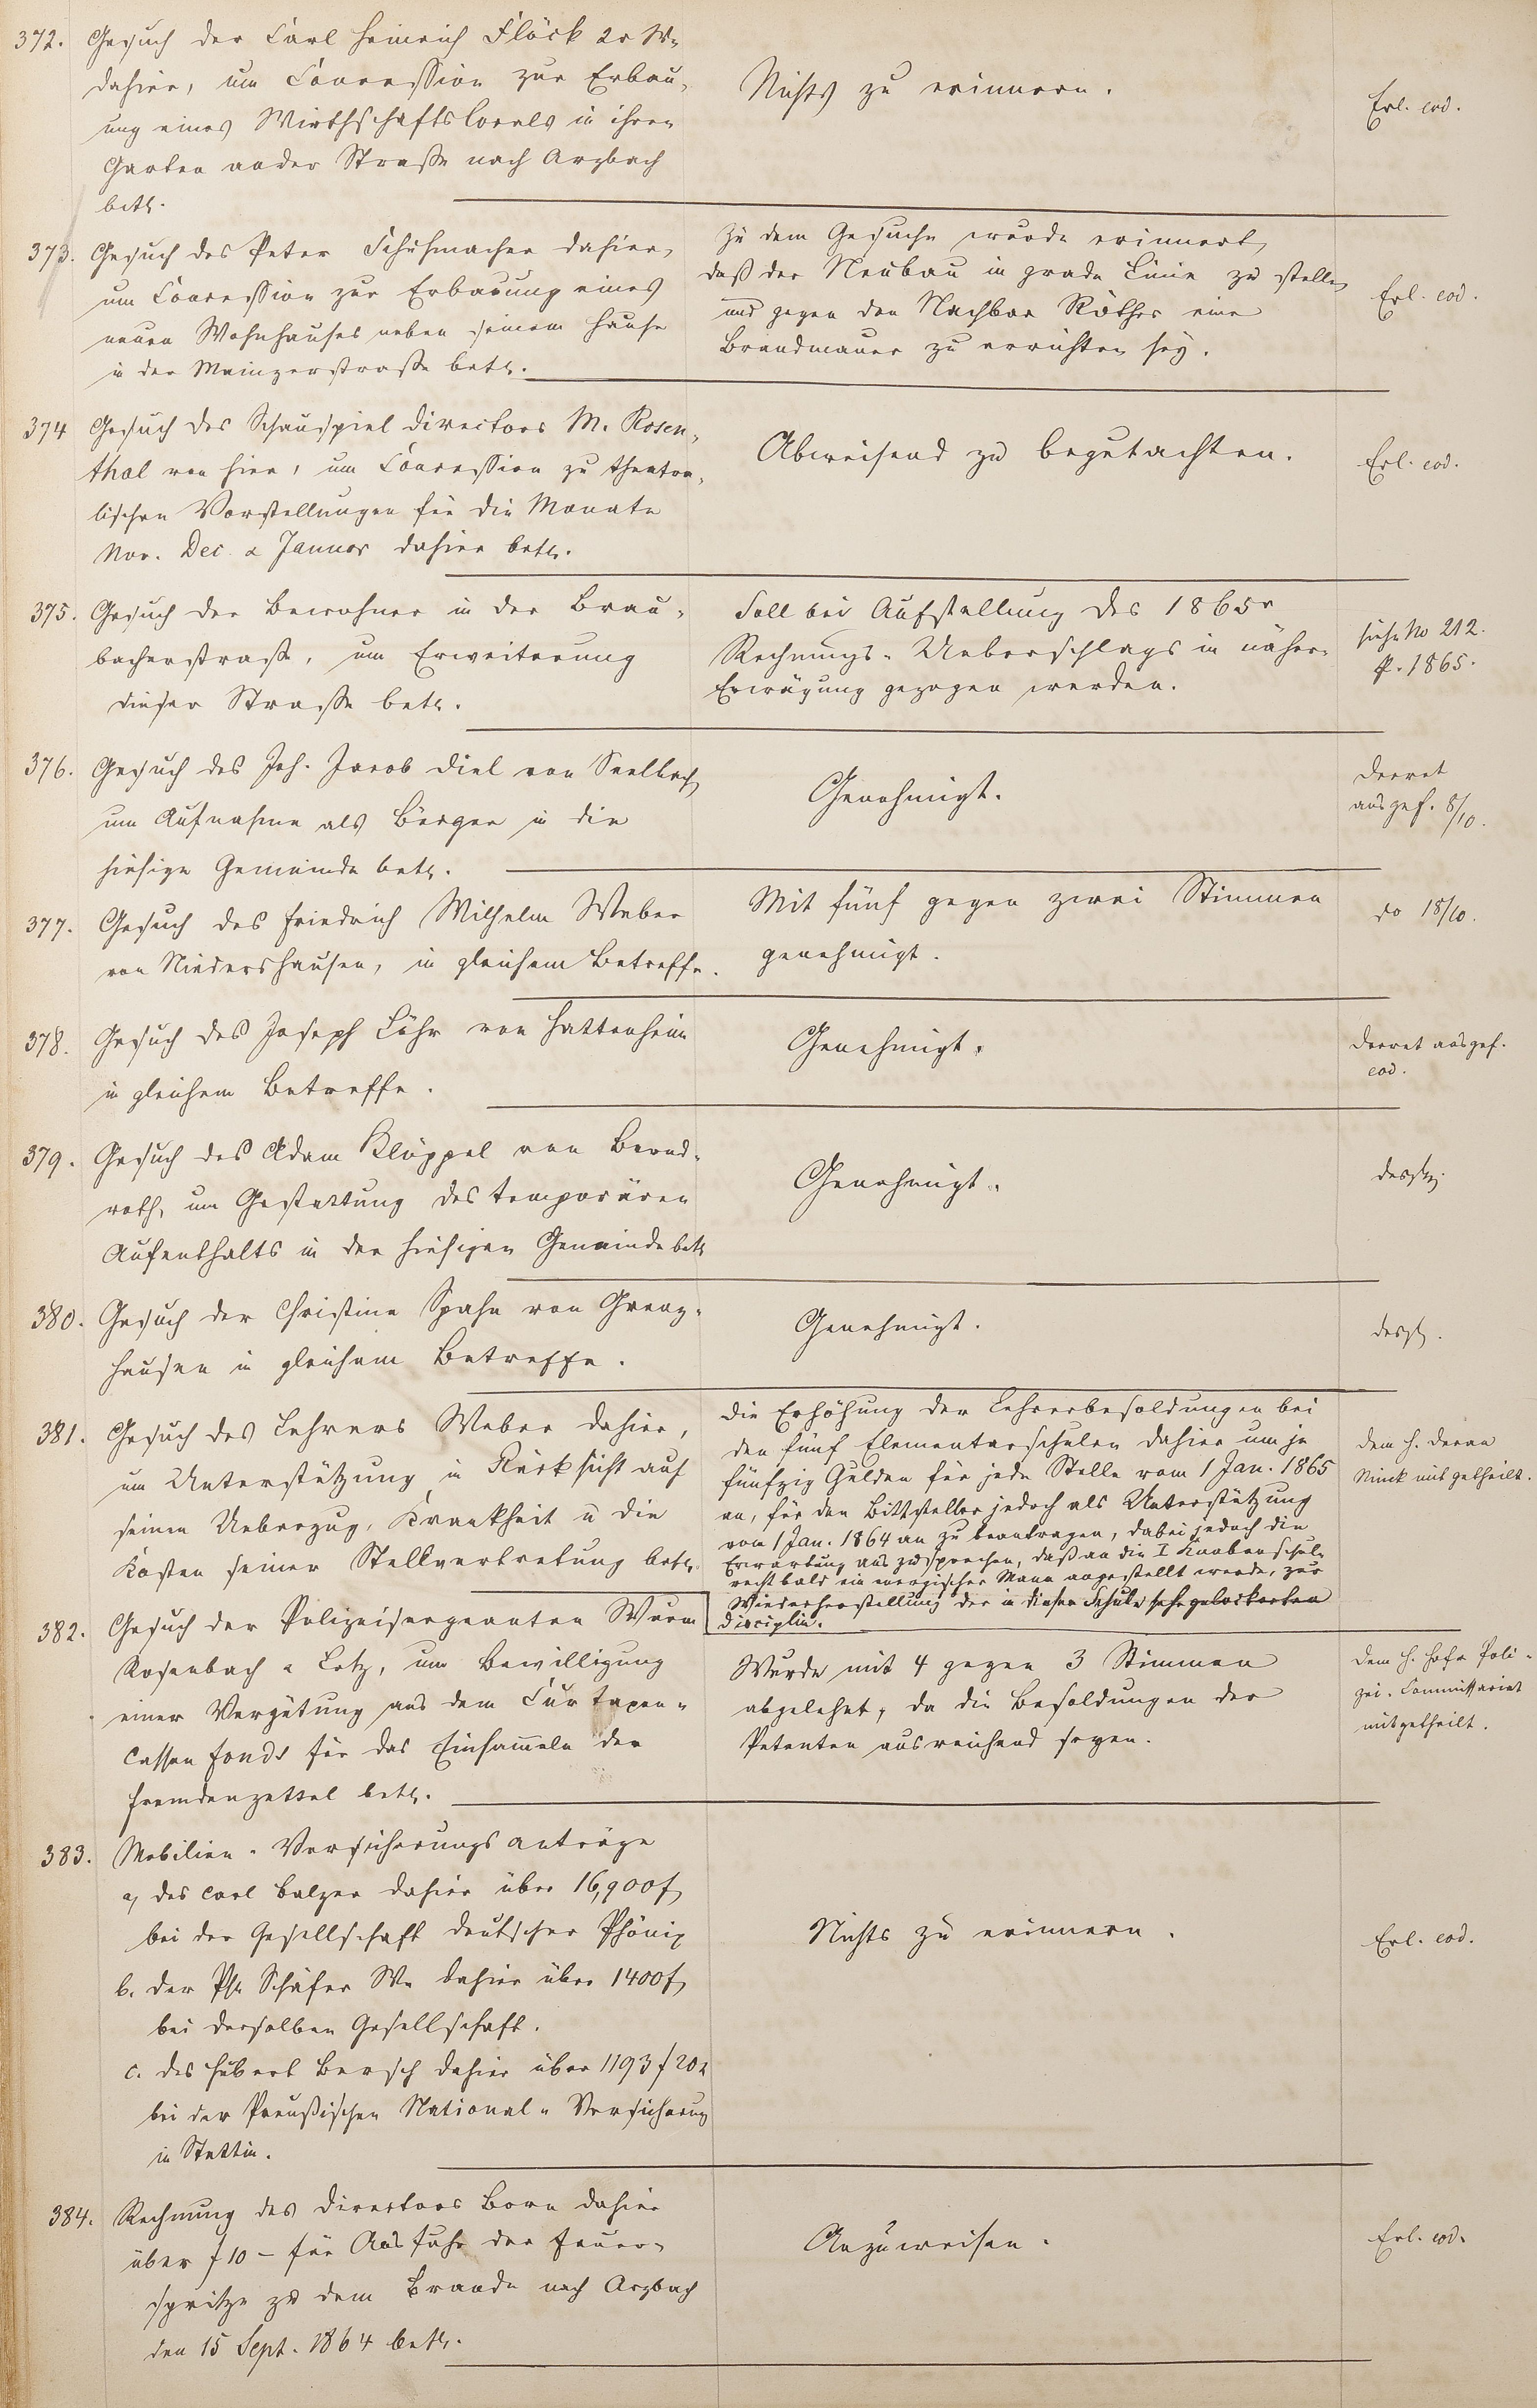 372. Gesuch der Carl Heinrich Flöck 2r We
dahier, um Concession zur Erbau-
ung eines Wirthschaftslocals in ihrem
Garten an der Straße nach Arzbach
betr.
Nichts zu erinnern.
Erl. eod.
373. Gesuch des Peter Schuhmacher dahier,
um Concession zur Erbauung eines
neuen Wohnhauses neben seinem Hause
in der Mainzerstraße betr.
Zu dem Gesuche wurde erinnert,
daß der Neubau in grade Linie zu stellen
und gegen den Nachbar Röther eine
Brandmauer zu errichten sey.
Erl. eod.
374 Gesuch des Schauspiel Directors M. Rosen-
thal von hier, um Concession zu theatra-
lischen Vorstellungen für die Monate
Nov. Dec. & Januar dahier betr.
Abweisend zu begutachten.
Erl. eod.
375. Gesuch der Bewohner in der Brau-
bacherstraße, um Erweiterung
dieser Straße betr.
Soll bei Aufstellung des 1865r
Rechnungs-Ueberschlags in nähere
Erwägung gezogen werden.
siehe No 212.
p. 1865.
376. Gesuch des Joh. Jacob Diel von Seelbach,
um Aufnahme als Bürger in die
hiesige Gemeinde betr.
Genehmigt.
Decret
ausgef. 8/10.
377. Gesuch des Friedrich Wilhelm Weber
von Niedershausen, in gleichem Betreffe.
Mit fünf gegen zwei Stimmen
genehmigt.
do 18/10.
378. Gesuch des Joseph Löhr von Hattenheim
in gleichem Betreffe.
Genehmigt.
Decret ausgef.
eod.
379. Gesuch des Adam Klöppel von Bernd-
roth, um Gestattung des temporären
Aufenthalts in der hiesigen Gemeinde betr
Genehmigt.
desgl.
380. Gesuch der Christine Spahn von Grenz-
hausen in gleichem Betreffe.
Genehmigt.
desgl.
381. Gesuch des Lehrers Weber dahier,
um Unterstützung in Rücksicht auf
seinen Ueberzug, Krankheit u die
Kosten seiner Stellvertretung betr.
Die Erhöhung der Lehrerbesoldungen bei
den fünf Elementarschulen dahier um je
fünfzig Gulden für jede Stelle vom 1 Jan. 1865
an, für den Bittsteller jedoch als Unterstützung
vom 1 Jan. 1864 an zu beantragen, dabei jedoch die
Erwartung auszusprechen, daß an die I Knabenschule
recht bald ein energischer Mann angestellt werde, zur
Wiederherstellung der in dieser Schule sehr gelockerten
Disciplin.
dem H. Decan
Ninck mitgetheilt.
382. Gesuch der Polizeisergeanten Wurm
Rosenbach & Lotz, um Bewilligung
einer Vergütung aus dem Curtaxen-
Cassen fonds für das Einsammeln der
Fremdenzettel betr.
Wurde mit 4 gegen 3 Stimmen
abgelehnt, da die Besoldungen der
Petenten ausreichend seyen.
dem H. Poli-
zei-Commissariat
mitgetheilt.
383. Mobilien-Versicherungsanträge
a, des Carl Balzer dahier über 16,900f,
bei der Gesellschaft deutscher Phönix
b. der Ph. Schäfer We dahier über 1400f,
bei derselben Gesellschaft.
c. des Hubert Bersch dahier über 1193 f 20x
bei der Preußischen National-Versicherung
in Stettin.
Nichts zu erinnern.
Erl. eod.
384. Rechnung des Directors Born dahier
über f 10 – für Ausfuhr der Feuer-
spritze zu dem Brande nach Arzbach
den 15 Sept. 1864 betr.
Anzuweisen.
Erl. eod.